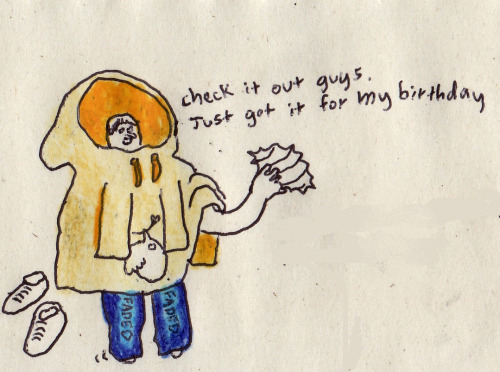 check it out guys.
Just got it for my birthday
FADED
FADED